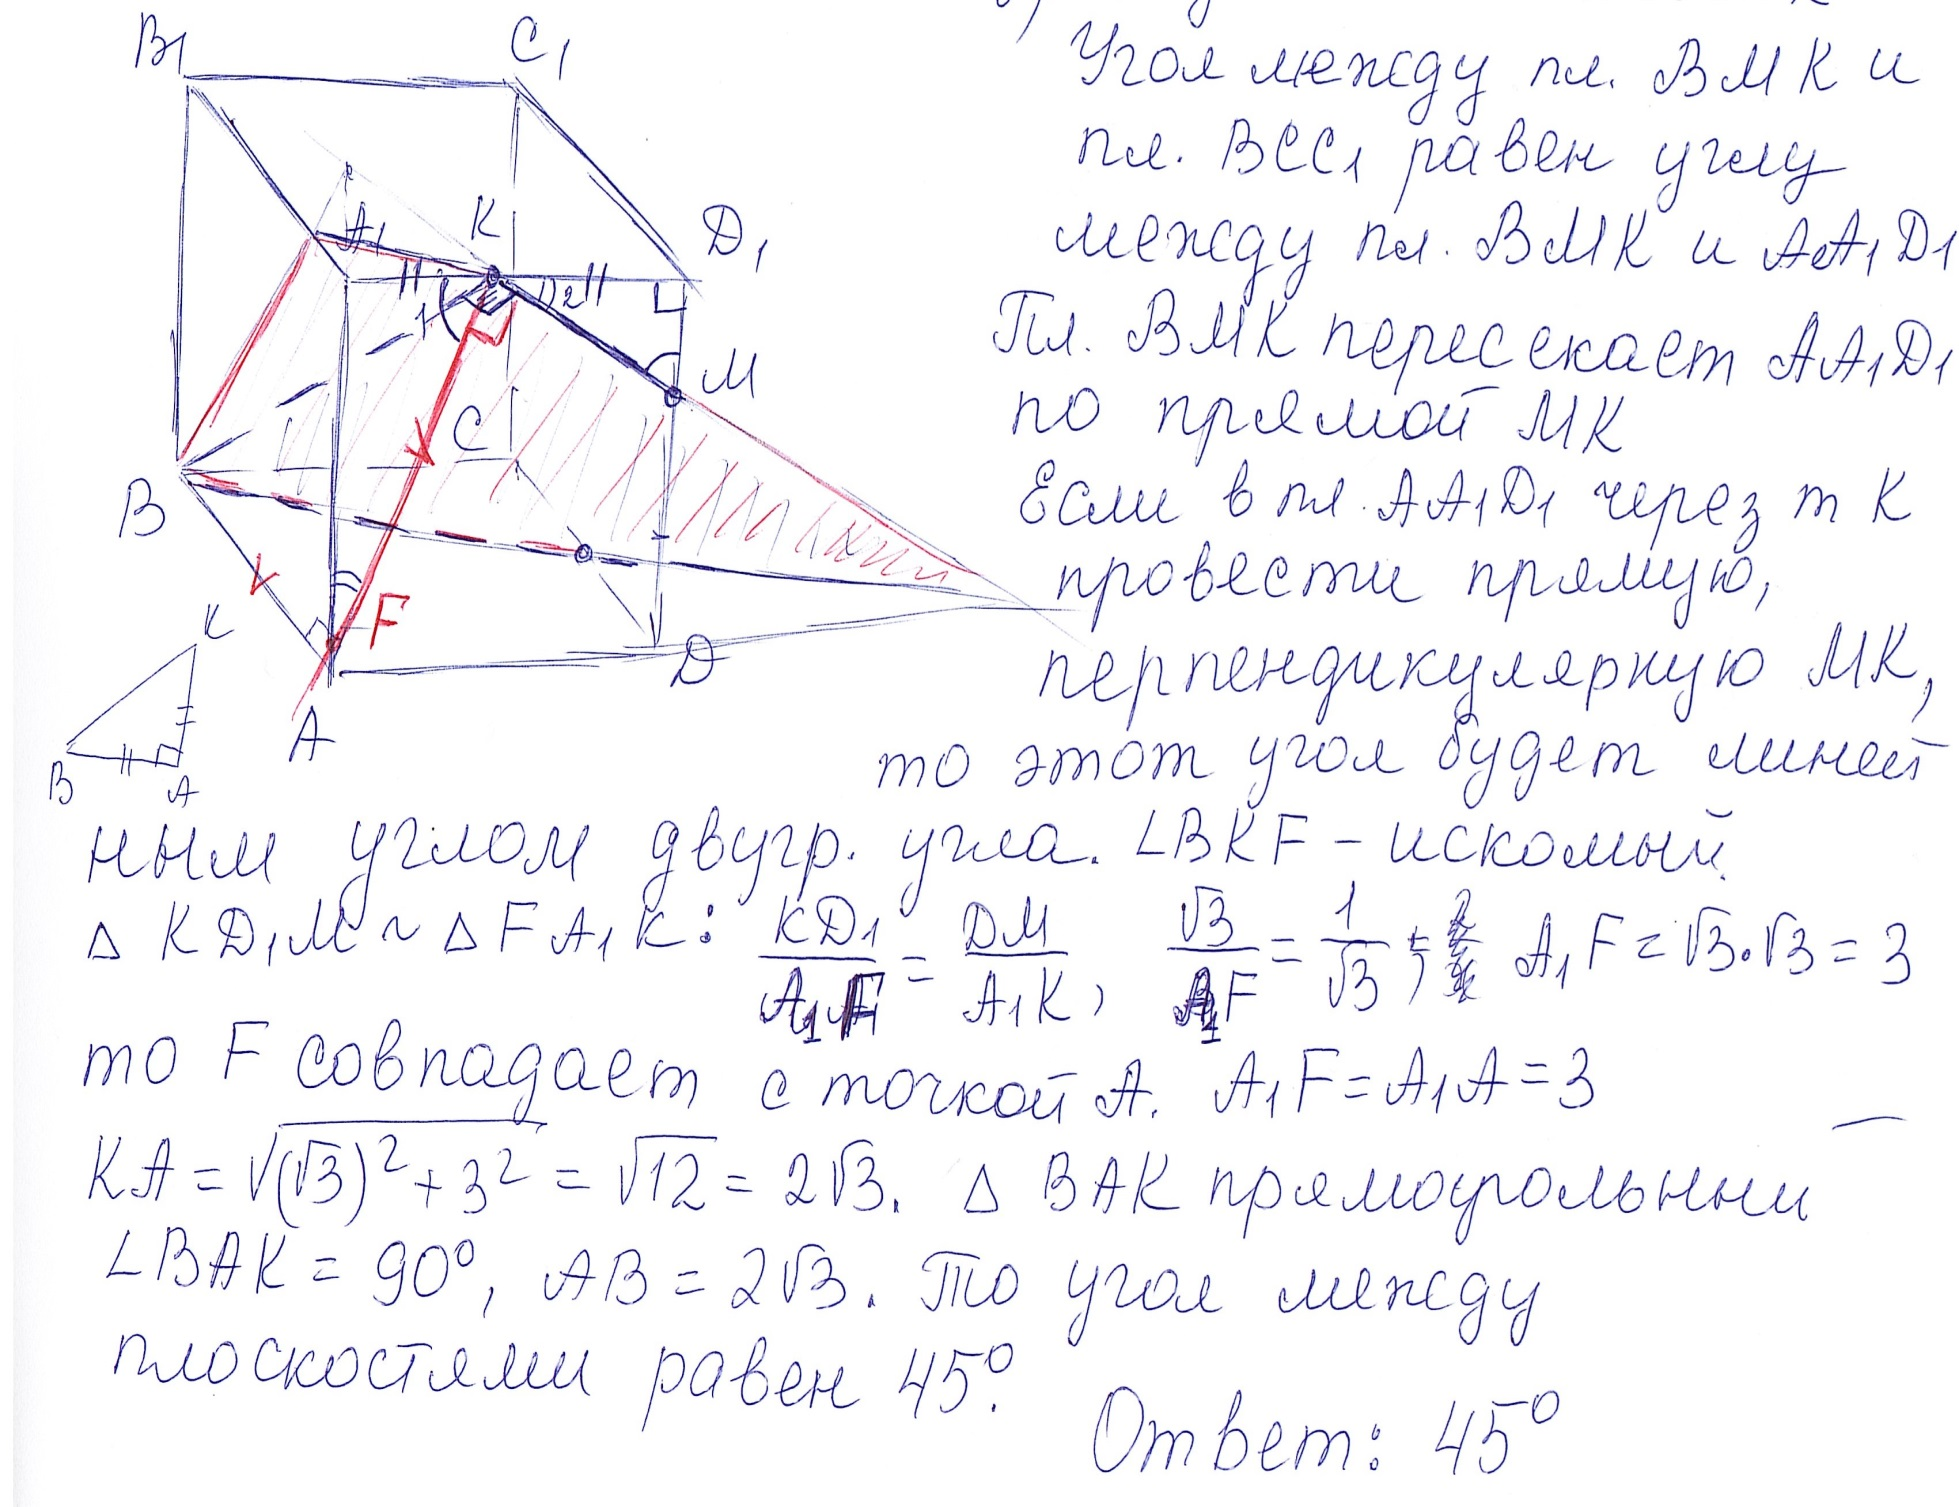 Угол между пл. ВМК и
пл. ВСС₁ равен углу
между пл. ВМК и АА₁D₁
Пл. ВМК пересекает АА₁D₁
по прямой МК
Если в пл. АА₁D₁ через т К
провести прямую,
перпендикулярную МК,
то этот угол будет линей
ным углом двугр. угла. ∠BKF - искомый.
Δ KD₁M ~ Δ FA₁K: KD₁/A₁F = DM/A₁K, √3/A₁F = 1/√3; A₁F = √3·√3 = 3
то F совпадает с точкой А. A₁F = A₁A = 3
KA = √((√3)² + 3²) = √12 = 2√3. Δ ВАК прямоугольный
∠BAK = 90°, AB = 2√3. То угол между
плоскостями равен 45°.
Ответ: 45°
B₁
C₁
A₁
K
D₁
1
2
M
C
B
F
D
A
K
B
A